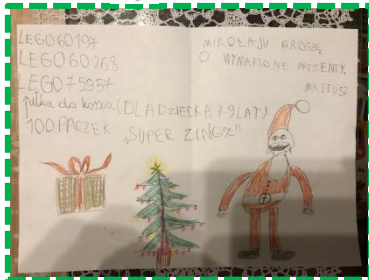 LEGO 60197
LEGO 60268
LEGO 75957
piłka do kosza (DLA DZIECKA 7-9 LAT)
100 PACZEK „SUPER ZINGS”
MIKOŁAJU PROSZĘ
O WYMARZONE PREZENTY.
MATEUSZ